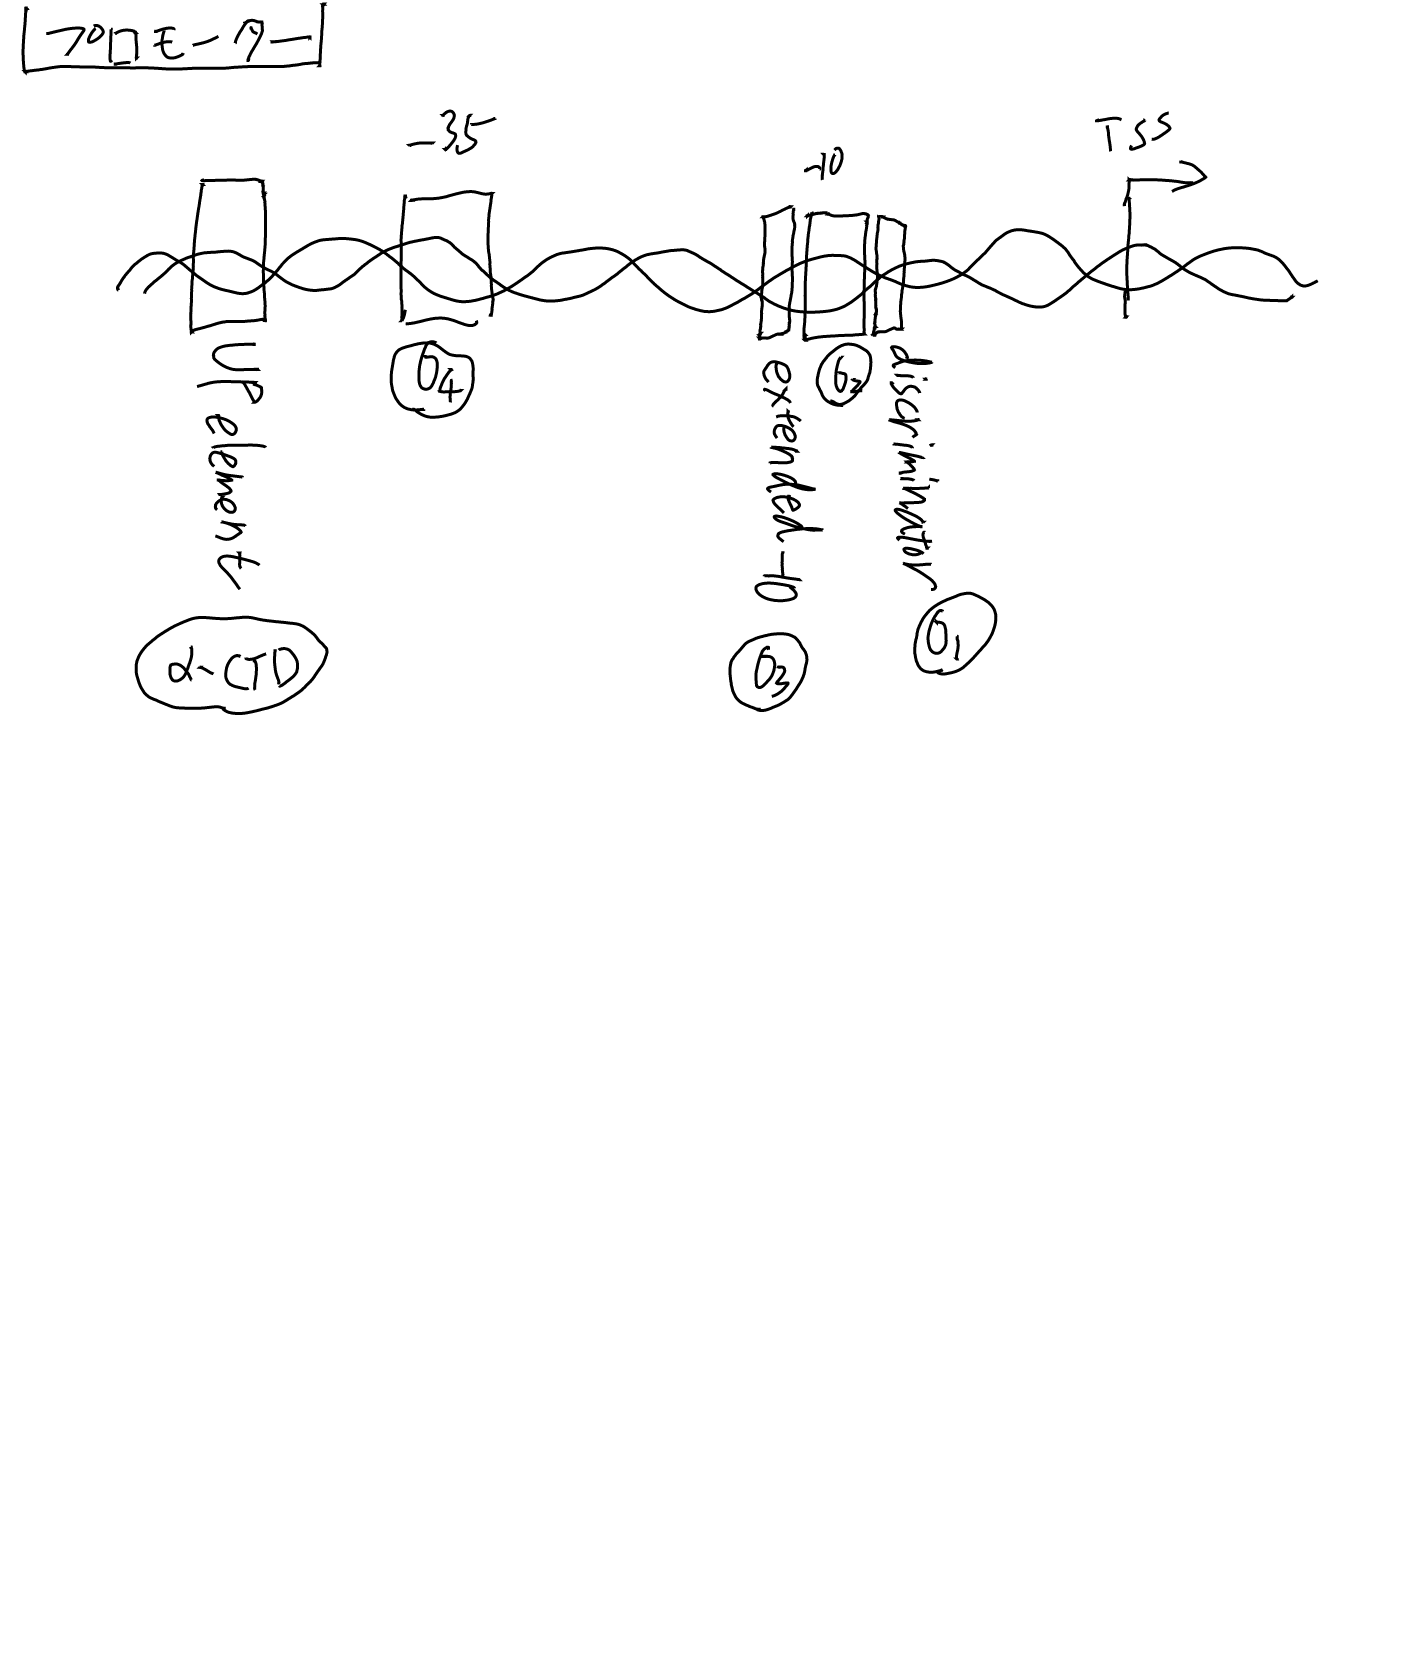 プロモーター
-35
-10
TSS
UP element
σ4
extended -10
σ2
discriminator
α-CTD
σ3
σ1